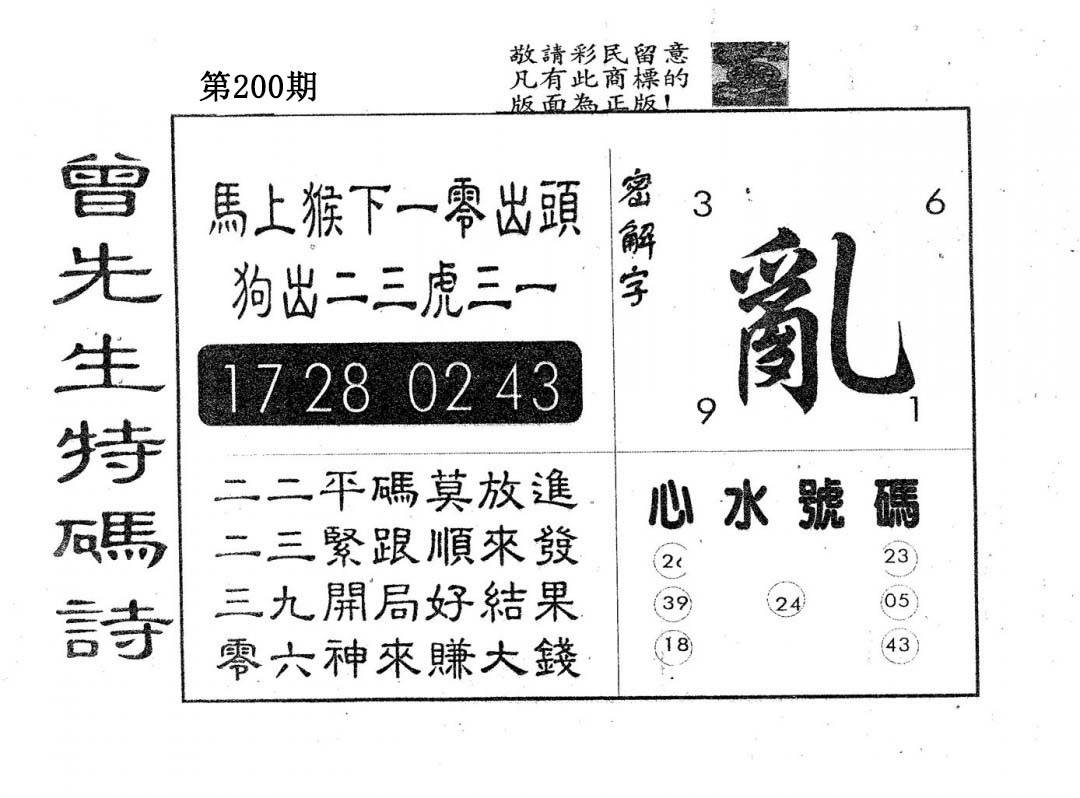 敬請彩民留意
凡有此商標的
版面為正版！
第200期
曾先生特碼詩
馬上猴下一零出頭
狗出二三虎三一
17 28 02 43
密解字
3 6
亂
9 1
二二平碼莫放進
二三緊跟順來發
三九開局好結果
零六神來賺大錢
心水號碼
26 23
39 24 05
18 43